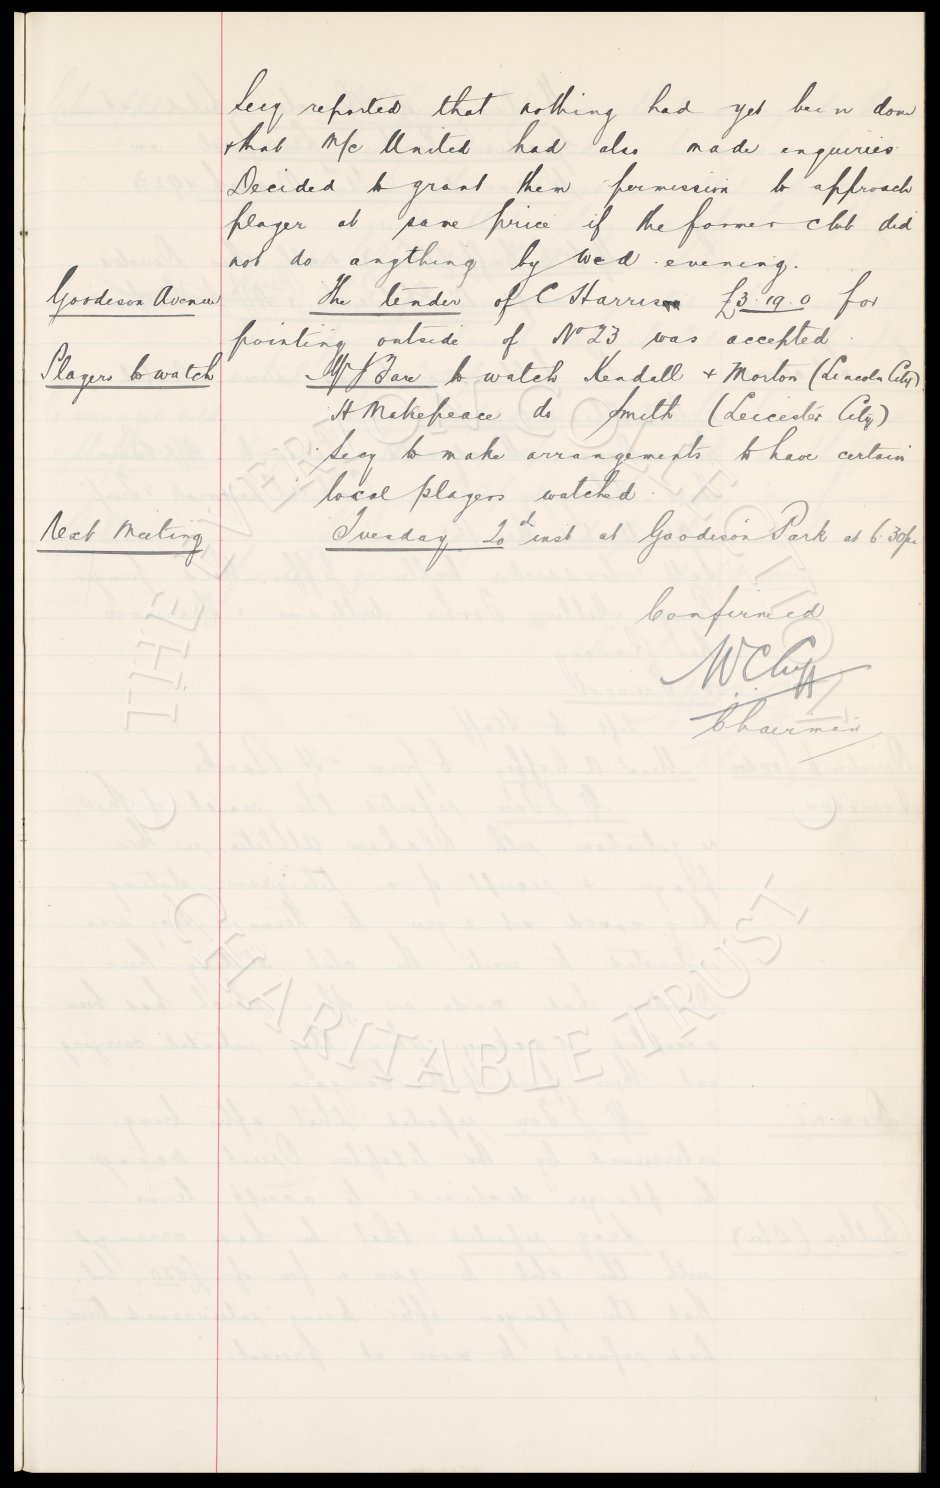 Secy reported that nothing had yet been done
& that M/c United had also made enquiries
Decided to grant them permission to approach
player at same price if the former club did
not do anything by Wed. evening.
Goodison Avenue The tender of C Harrison £3.19.0 for
pointing outside of No 23 was accepted.
Players to watch Mr J Fare to watch Kendall & Morton (Lincoln City)
H Makepeace do Smith (Leicester City)
Secy to make arrangements to have certain
local players watched.
Next Meeting Tuesday 20th inst at Goodison Park at 6.30pm
Confirmed
W C Cuff
Chairman
THE EVERTON COLLECTION
CHARITABLE TRUST